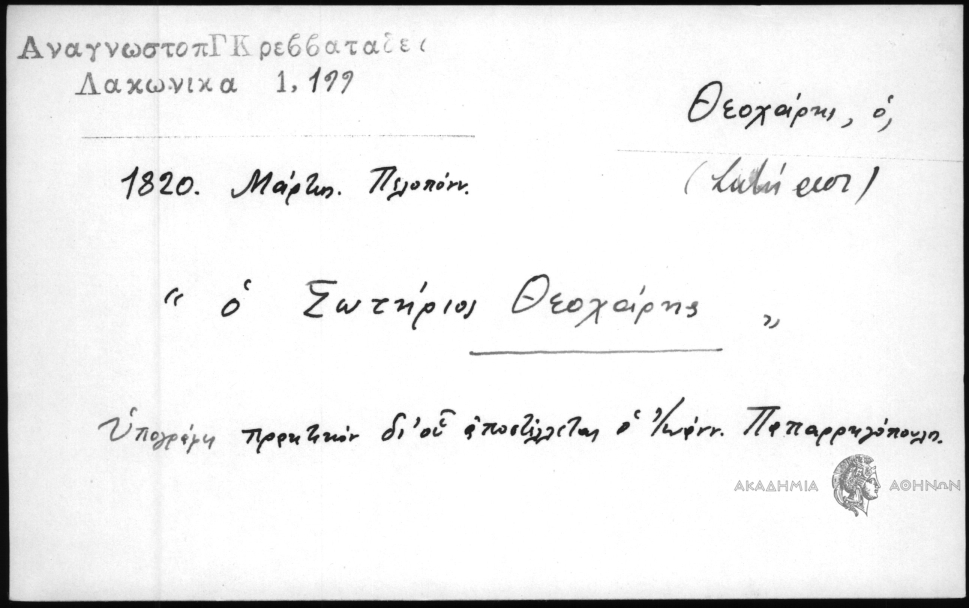 ΑναγνωστοπΓΚρεββαταδες
Λακωνικα 1, 199
Θεοχάρης, ὁ,
(Σωτήριος)
1820. Μάρτιος. Πελοπόνν.
“ ὁ Σωτήριος Θεοχάρης „
Ὑπογράφει πρακτικόν δι' οὗ ἀποστέλλεται ὁ Ἰωάνν. Παπαρρηγόπουλος.
ΑΚΑΔΗΜΙΑ ΑΘΗΝΩΝ